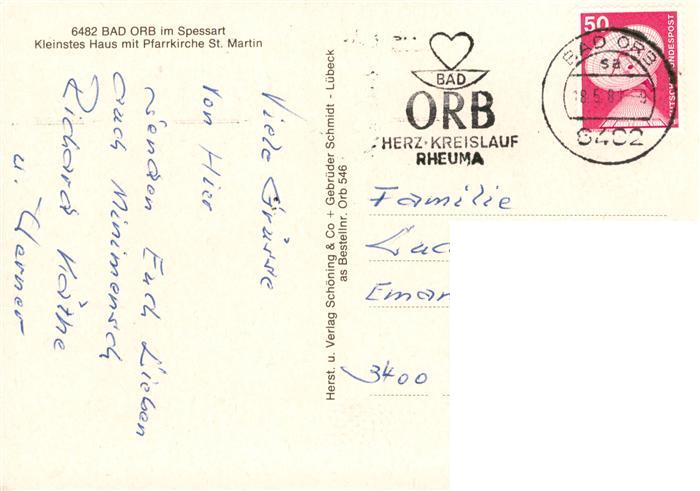 6482 BAD ORB im Spessart
Kleinstes Haus mit Pfarrkirche St. Martin
Viele Grüsse
von Hier
senden Euch Lieben
auch Minimensch
Richard Käthe
u. Werner
Herst. u. Verlag Schöning & Co + Gebrüder Schmidt - Lübeck
as Bestellnr. Orb 546
BAD
ORB
HERZ-KREISLAUF
RHEUMA
50
DEUTSCHE BUNDESPOST
BAD ORB
sa
6482
Familie
3400